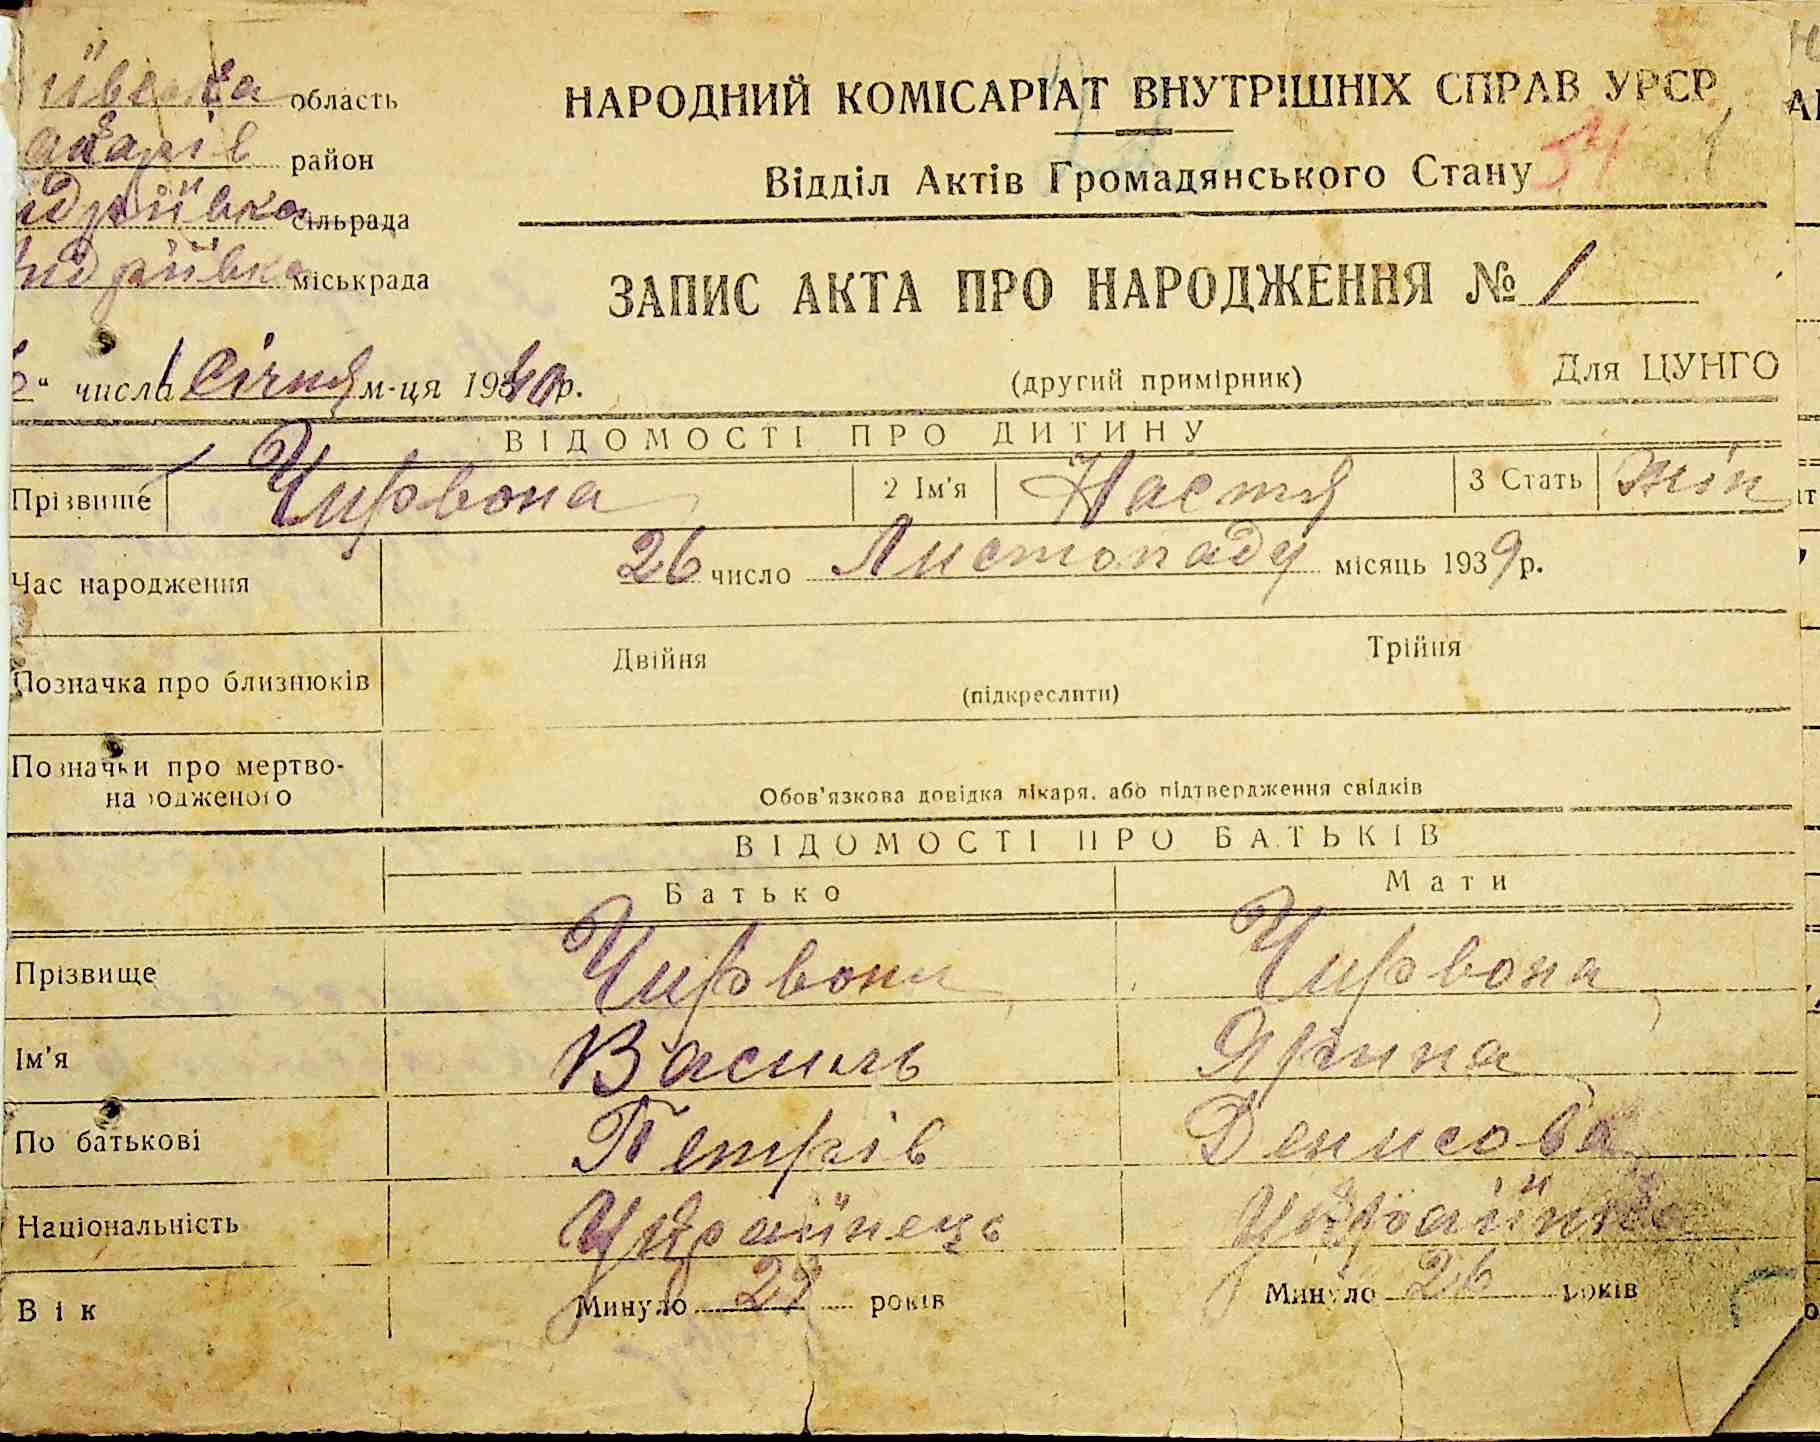 ївська область
НАРОДНИЙ КОМІСАРІАТ ВНУТРІШНІХ СПРАВ УРСР
акарів район
Відділ Актів Громадянського Стану 54
ндріївка сільрада
ндріївка міськрада
ЗАПИС АКТА ПРО НАРОДЖЕННЯ № 1
" числа Січня м-ця 1940 р.
(другий примірник)
Для ЦУНГО
ВІДОМОСТІ ПРО ДИТИНУ
Прізвище Чирвона 2 Ім'я Настя 3 Стать жін
Час народження 26 число Листопаду місяць 1939 р.
Позначка про близнюків Двійня Трійня
(підкреслити)
Позначки про мертво-
народженого
Обов'язкова довідка лікаря, або підтвердження свідків
ВІДОМОСТІ ПРО БАТЬКІВ
Батько Мати
Прізвище Чирвони Чирвона
Ім'я Василь Ярина
По батькові Петрів Денисова
Національність Українець Українка
Вік Минуло років Минуло 26 років